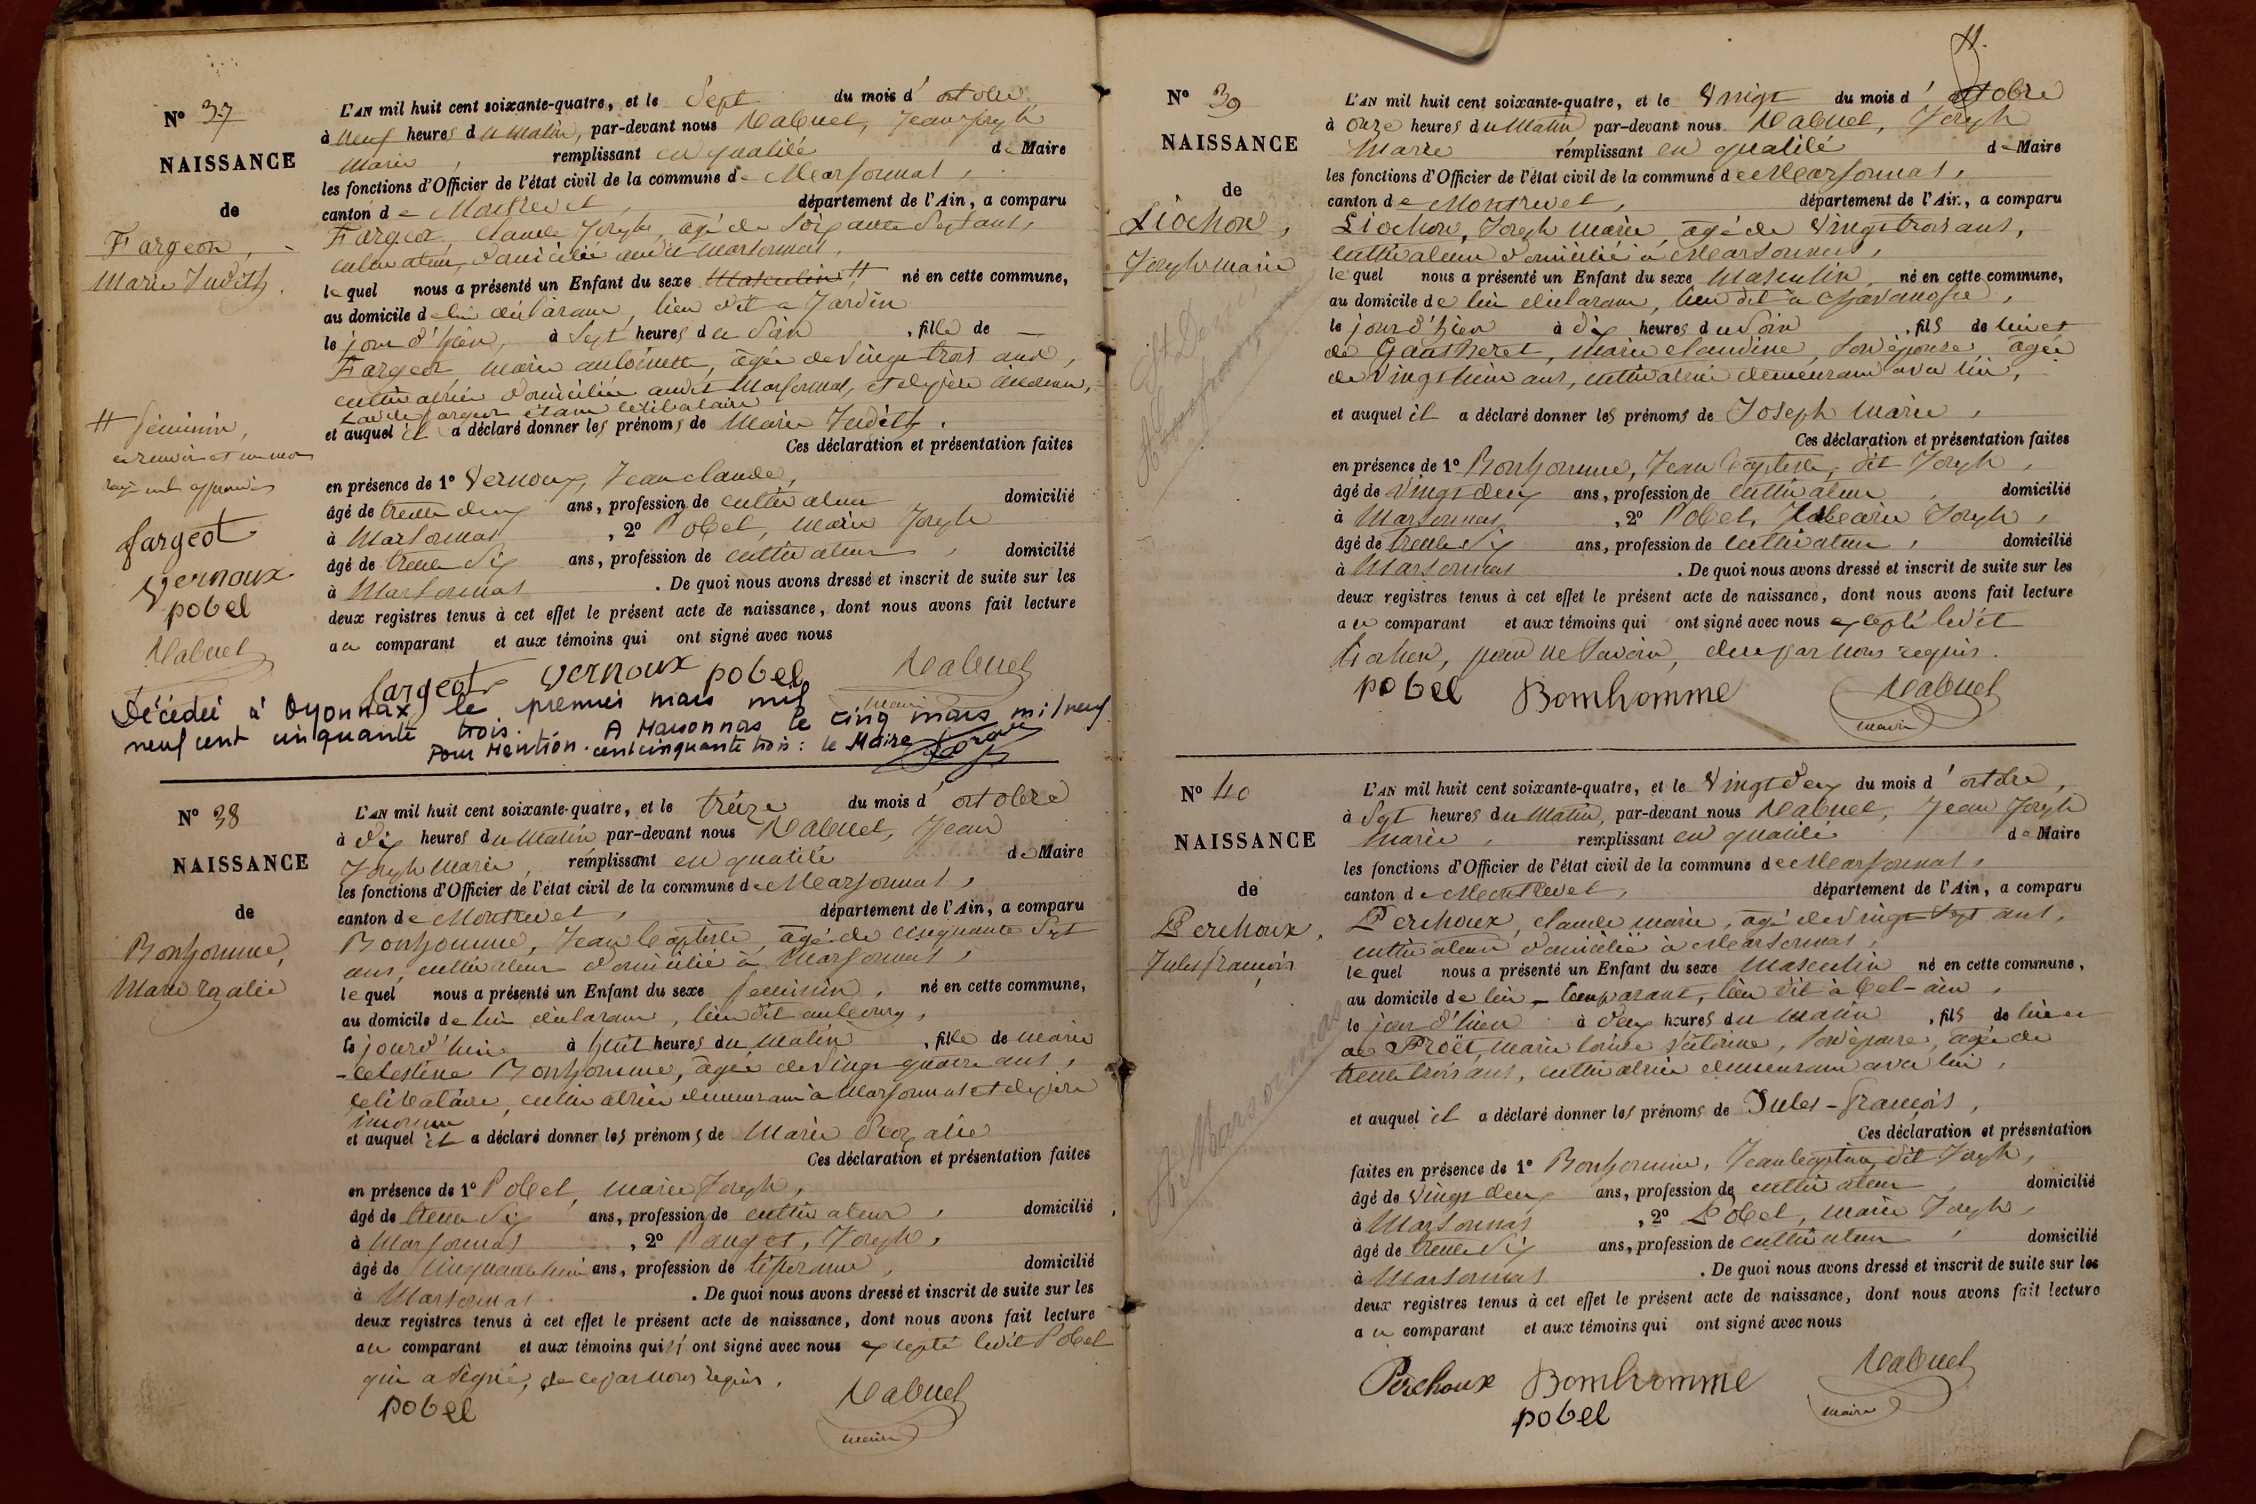 Nº 37
NAISSANCE
de
Fargeot,
Marie Judith.
L'AN mil huit cent soixante-quatre, et le Sept du mois d'octobre
à neuf heures du Matin, par-devant nous Jean Joseph
Marie, remplissant en qualité de Maire
les fonctions d'Officier de l'état civil de la commune de Marsonnas,
canton de Montrevel, département de l'Ain, a comparu
Fargeot, claude Joseph, âgé de Soixante Sept ans,
cultivateur, domicilié audit Marsonnas,
lequel nous a présenté un Enfant du sexe Masculin # né en cette commune,
au domicile de lui déclarant, lieu dit a Jardin
le jour d'hier, à Sept heures du Soir, fille de
Fargeot marie antoinette, âgée de Vingt trois ans,
cultivatrice domiciliée audit Marsonnas, et de père inconnu,
Ladite fargeot étant célibataire
et auquel il a déclaré donner les prénoms de Marie Judith.
Ces déclaration et présentation faites
en présence de 1º Vernoux, Jean claude,
âgé de trente deux ans, profession de cultivateur domicilié
à Marsonnas, 2º Pobel, marie Joseph
âgé de trente Six ans, profession de cultivateur, domicilié
à Marsonnas. De quoi nous avons dressé et inscrit de suite sur les
deux registres tenus à cet effet le présent acte de naissance, dont nous avons fait lecture
au comparant et aux témoins qui ont signé avec nous
# féminin,
fargeot
vernoux
pobel
fargeot vernoux pobel
maire
Décédée à Oyonnax le premier mars mil
neuf cent cinquante trois. A Marsonnas le cinq mars mil neuf
Pour Mention. cent cinquante trois : le Maire
Nº 38
NAISSANCE
de
Bonhomme,
Marie rozalie
L'AN mil huit cent soixante-quatre, et le treize du mois d'octobre
à dix heures du Matin par-devant nous Jean
Joseph Marie, remplissant en qualité de Maire
les fonctions d'Officier de l'état civil de la commune de Marsonnas,
canton de Montrevel, département de l'Ain, a comparu
Bonhomme, Jean baptiste, âgé de cinquante Sept
ans, cultivateur domicilié à Marsonnas,
lequel nous a présenté un Enfant du sexe féminin, né en cette commune,
au domicile de lui déclarant, lieu dit au bourg,
le jour d'hier à huit heures du matin, fille de marie
célestine Bonhomme, âgée de Vingt quatre ans,
célibataire, cultivatrice demeurant à Marsonnas et de père
inconnu
et auquel il a déclaré donner les prénoms de Marie Rozalie
Ces déclaration et présentation faites
en présence de 1º Pobel, marie Joseph,
âgé de trente Six ans, profession de cultivateur, domicilié
à Marsonnas, 2º Pauget, Joseph,
âgé de cinquante huit ans, profession de tisserand, domicilié
à Marsonnas. De quoi nous avons dressé et inscrit de suite sur les
deux registres tenus à cet effet le présent acte de naissance, dont nous avons fait lecture
au comparant et aux témoins qui ont signé avec nous excepté ledit Pobel
qui a Signé, de ce par nous requis.
pobel
maire
11.
Nº 39
NAISSANCE
de
Liochon,
Joseph marie
L'AN mil huit cent soixante-quatre, et le Vingt du mois d'octobre
à onze heures du Matin par-devant nous Joseph
Marie remplissant en qualité de Maire
les fonctions d'Officier de l'état civil de la commune de Marsonnas,
canton de Montrevel, département de l'Ain, a comparu
Liochon, Joseph marie, âgé de Vingt trois ans,
cultivateur domicilié à Marsonnas,
lequel nous a présenté un Enfant du sexe Masculin, né en cette commune,
au domicile de lui déclarant, lieu dit à
le jour d'hier à dix heures du Soir, fils de lui et
de Gautheret, marie claudine, Son épouse, âgée
de Vingt huit ans, cultivatrice demeurant avec lui,
et auquel il a déclaré donner les prénoms de Joseph Marie,
Ces déclaration et présentation faites
en présence de 1º Bonhomme, Jean baptiste, dit Joseph,
âgé de Vingt deux ans, profession de cultivateur, domicilié
à Marsonnas, 2º Pobel, Marie Joseph,
âgé de trente Six ans, profession de cultivateur, domicilié
à Marsonnas. De quoi nous avons dressé et inscrit de suite sur les
deux registres tenus à cet effet le présent acte de naissance, dont nous avons fait lecture
au comparant et aux témoins qui ont signé avec nous excepté ledit
Liochon, pour ne Savoir, de ce par nous requis.
pobel Bomhomme
maire
Nº 40
NAISSANCE
de
Perchoux,
Jules françois
L'AN mil huit cent soixante-quatre, et le Vingt deux du mois d'octobre,
à Sept heures du Matin, par-devant nous Jean Joseph
Marie, remplissant en qualité de Maire
les fonctions d'Officier de l'état civil de la commune de Marsonnas,
canton de Montrevel, département de l'Ain, a comparu
Perchoux, claude marie, âgé de Vingt Sept ans,
cultivateur domicilié à Marsonnas,
lequel nous a présenté un Enfant du sexe Masculin né en cette commune,
au domicile de lui comparant, lieu dit à bel-air,
le jour d'hier à deux heures du matin, fils de lui et
de Proët, marie louise Victorine, Son épouse, âgée de
trente trois ans, cultivatrice demeurant avec lui,
et auquel il a déclaré donner les prénoms de Jules-françois,
Ces déclaration et présentation
faites en présence de 1º Bonhomme, Jean baptiste, dit Joseph,
âgé de Vingt deux ans, profession de cultivateur, domicilié
à Marsonnas, 2º Pobel, marie Joseph,
âgé de trente Six ans, profession de cultivateur, domicilié
à Marsonnas. De quoi nous avons dressé et inscrit de suite sur les
deux registres tenus à cet effet le présent acte de naissance, dont nous avons fait lecture
au comparant et aux témoins qui ont signé avec nous
Perchoux Bomhomme
pobel
maire